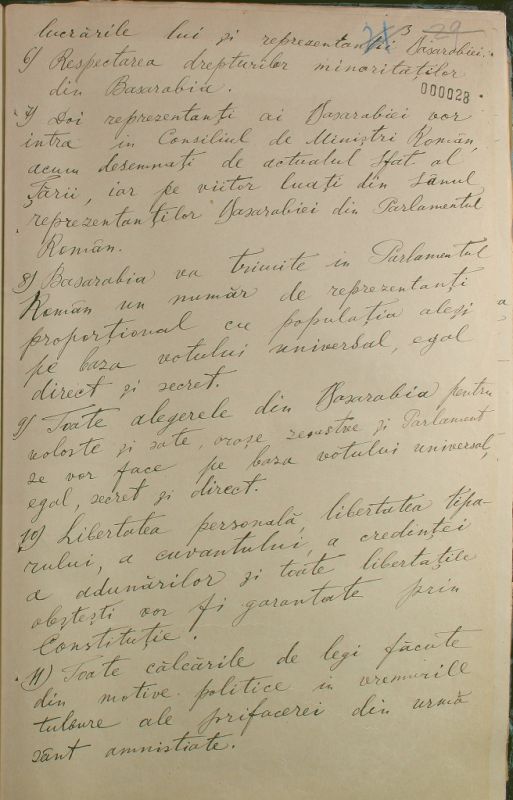 3 29
lucrările lui și reprezentanții Basarabiei.
000028
6) Respectarea drepturilor minorităților
din Basarabia.
7) Doi reprezentanți ai Basarabiei vor
intra in Consiliul de Miniștri Român,
acum desemnați de actualul Sfat al
Țării, iar pe viitor luați din sânul
reprezentanților Basarabiei din Parlamentul
Român.
8) Basarabia va trimite in Parlamentul
Român un număr de reprezentanți
proporțional cu populația aleși
pe baza votului universal, egal
direct și secret.
9) Toate alegerele din Basarabia pentru
voloste și sate, orașe zemstve și Parlament
se vor face pe baza votului universal,
egal, secret și direct.
10) Libertatea personală, libertatea tipa-
rului, a cuvantului, a credinței
a adunărilor și toate libertațile
obștești vor fi garantate prin
Constituție.
11) Toate călcările de legi făcute
din motive politice in vremurile
tulbure ale prifacerei din urmă
sânt amnistiate.